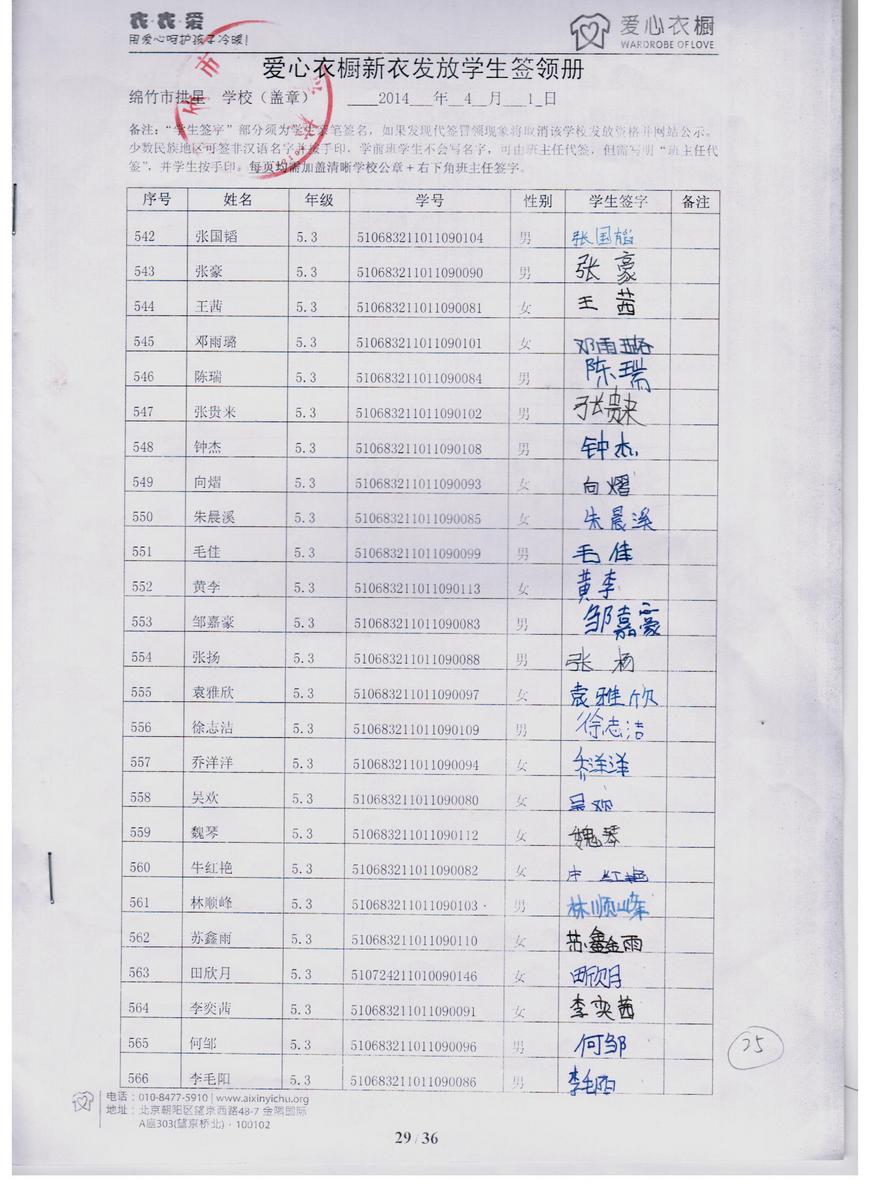 衣·衣·爱
用爱心呵护孩子冷暖!
爱心衣橱
WARDROBE OF LOVE
爱心衣橱新衣发放学生签领册
绵竹市拱星 学校（盖章） 2014 年 4 月 1 日
备注：“学生签字”部分须为学生亲笔签名，如果发现代签冒领现象将取消该学校发放资格并网站公示。
少数民族地区可签非汉语名字并按手印，学前班学生不会写名字，可由班主任代签，但需写明“班主任代
签”，并学生按手印。每页均需加盖清晰学校公章+右下角班主任签字。
序号 姓名 年级 学号 性别 学生签字 备注
542 张国韬 5.3 510683211011090104 男 张国韬
543 张豪 5.3 510683211011090090 男 张豪
544 王茜 5.3 510683211011090081 女 王茜
545 邓雨璐 5.3 510683211011090101 女 邓雨璐
546 陈瑞 5.3 510683211011090084 男 陈瑞
547 张贵来 5.3 510683211011090102 男 张贵来
548 钟杰 5.3 510683211011090108 男 钟杰
549 向熠 5.3 510683211011090093 女 向熠
550 朱晨溪 5.3 510683211011090085 女 朱晨溪
551 毛佳 5.3 510683211011090099 男 毛佳
552 黄李 5.3 510683211011090113 女 黄李
553 邹嘉豪 5.3 510683211011090083 男 邹嘉豪
554 张扬 5.3 510683211011090088 男 张杨
555 袁雅欣 5.3 510683211011090097 女 袁雅欣
556 徐志洁 5.3 510683211011090109 男 徐志洁
557 乔洋洋 5.3 510683211011090094 女 乔洋洋
558 吴欢 5.3 510683211011090080 女 吴欢
559 魏琴 5.3 510683211011090112 女 魏琴
560 牛红艳 5.3 510683211011090082 女 牛红艳
561 林顺峰 5.3 510683211011090103 男 林顺峰
562 苏鑫雨 5.3 510683211011090110 女 苏鑫雨
563 田欣月 5.3 510724211010090146 女 田欣月
564 李奕茜 5.3 510683211011090091 女 李奕茜
565 何邹 5.3 510683211011090096 男 何邹
566 李毛阳 5.3 510683211011090086 男 李毛阳
25
电话：010-8477-5910 | www.aixinyichu.org
地址：北京朝阳区望京西路48-7 金隅国际
A座303(望京桥北)·100102
29 / 36